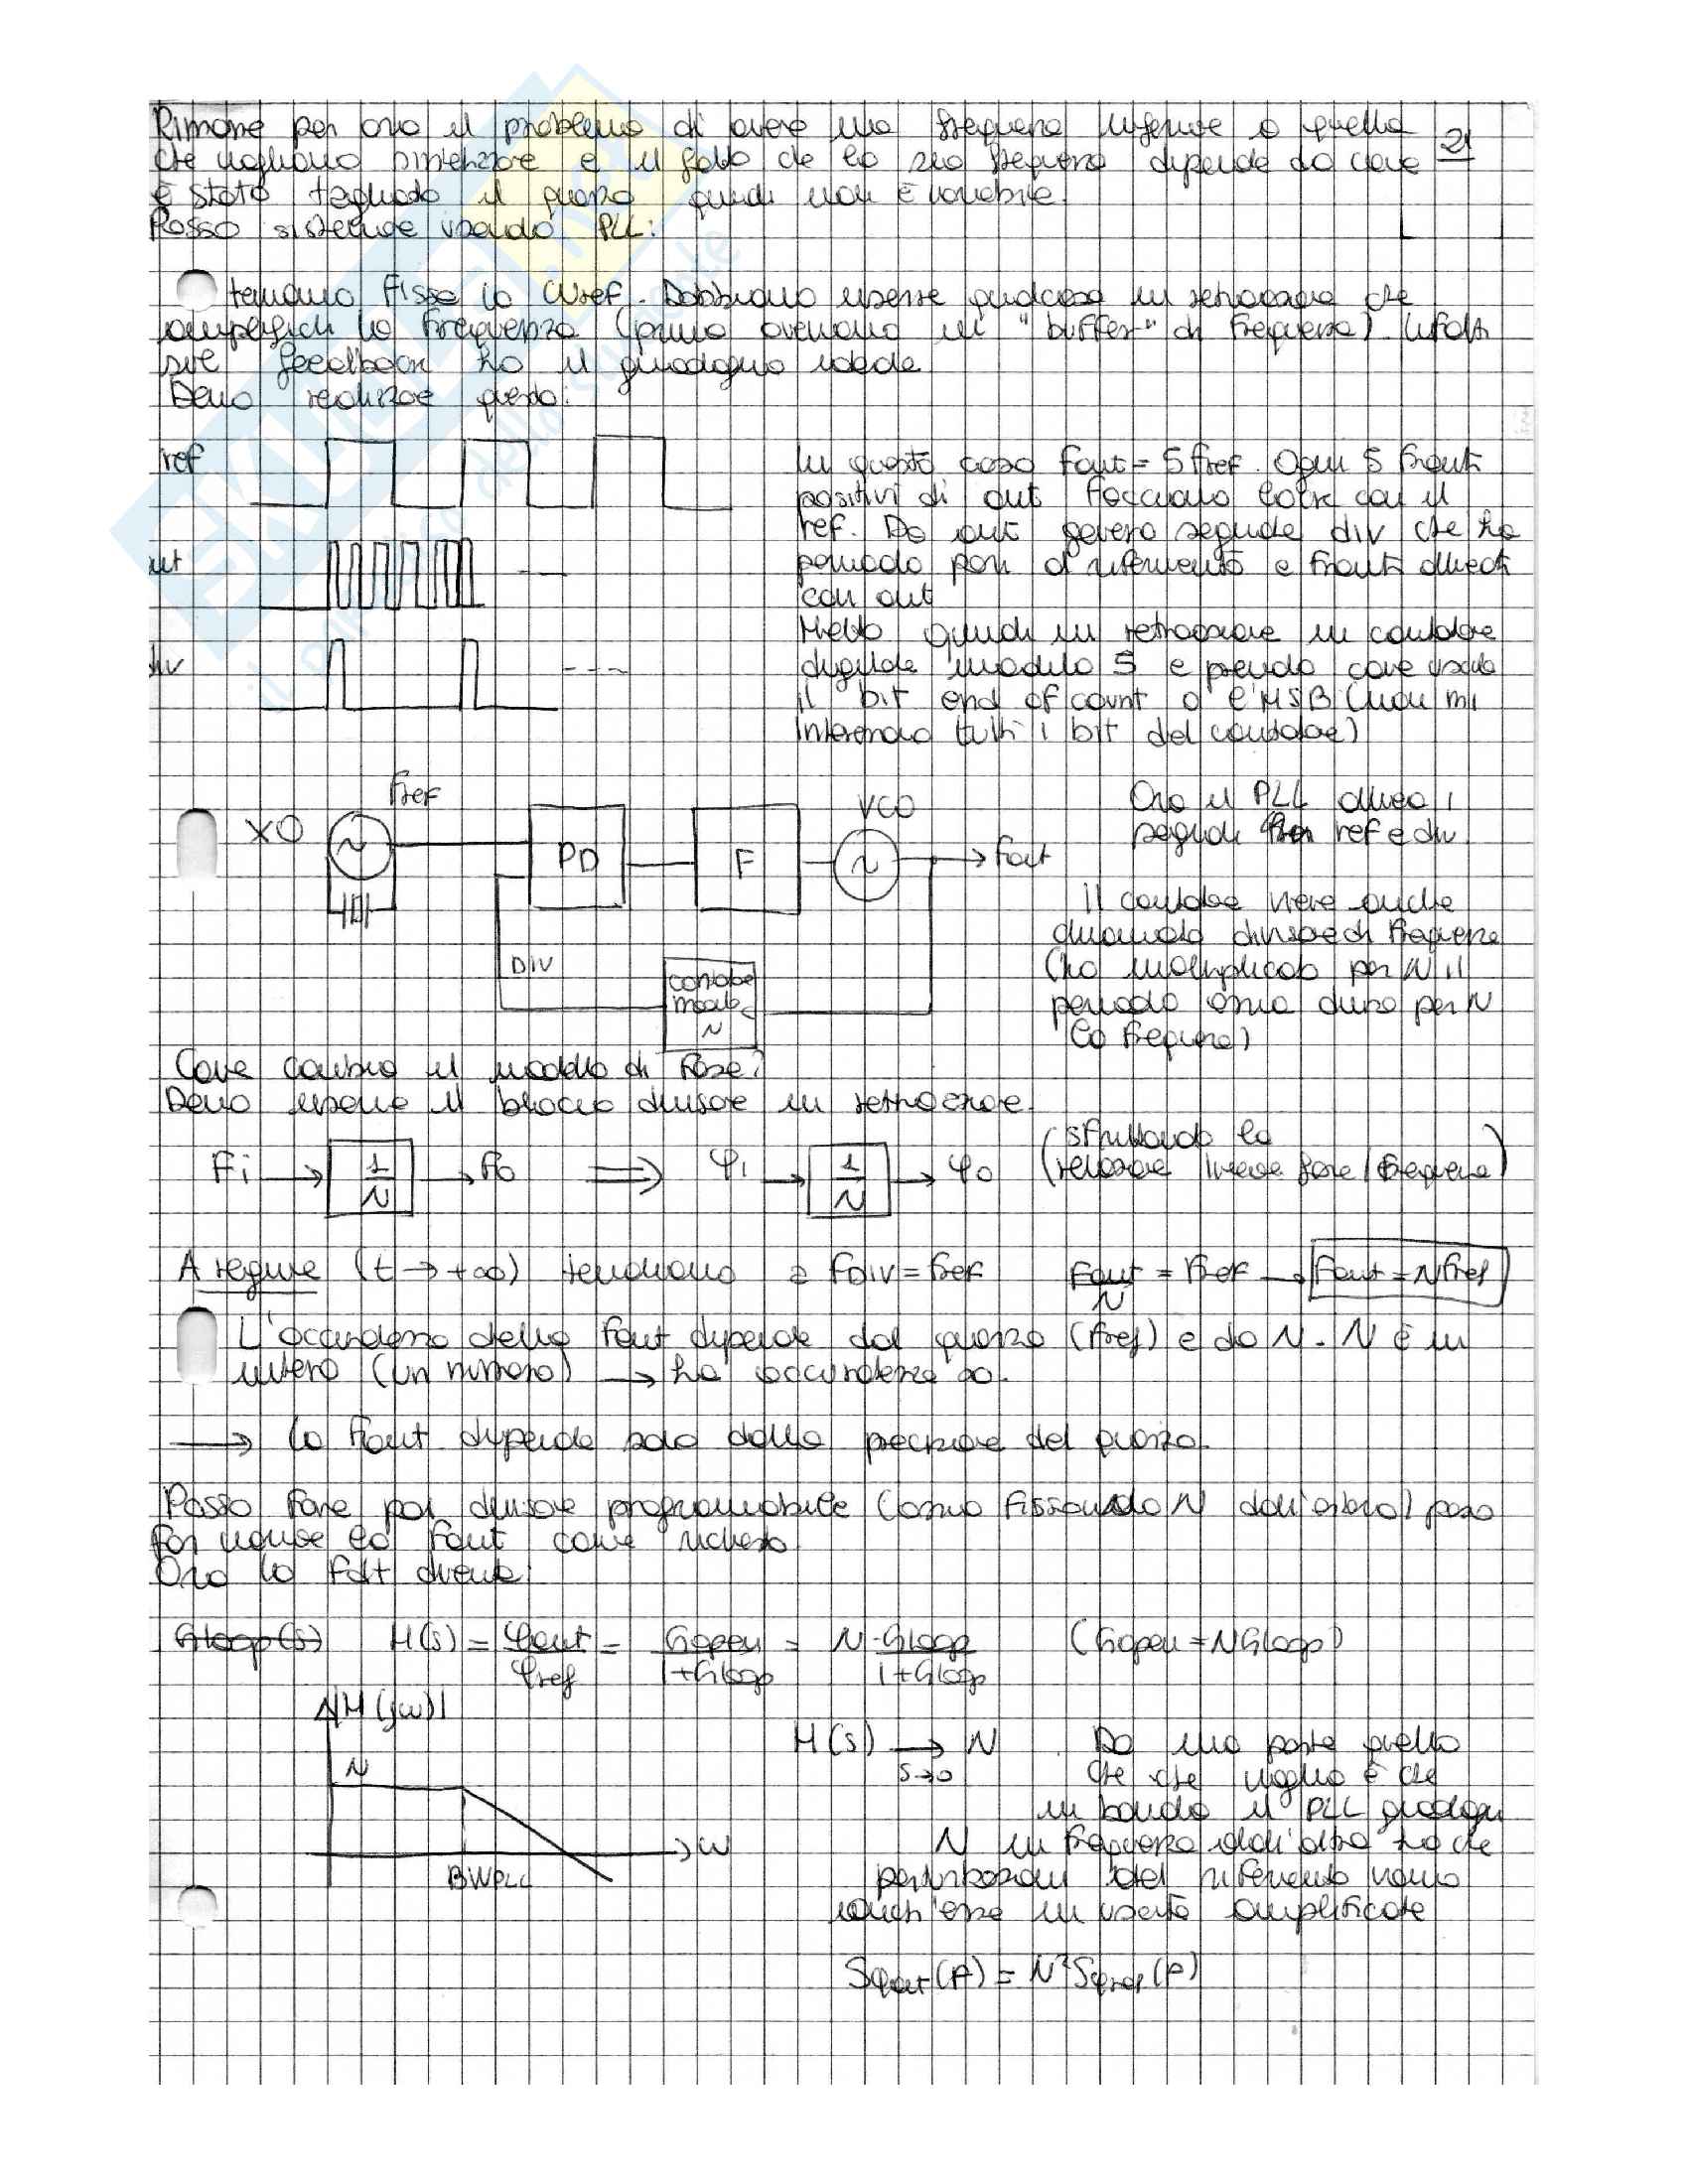 Rimane per ora il problema di avere una frequenza inferiore a quella
21
che vogliamo sintetizzare e il fatto che la sua frequenza dipende da come
è stato tagliato il quarzo quindi non è variabile.
Posso sistemare usando PLL:
teniamo fissa la ωref. Dobbiamo inserire qualcosa in retroazione che
amplifichi la frequenza (prima avevamo un "buffer" di frequenza). Infatti
sul feedback ho il guadagno ideale
Devo realizzare questo:
ref
out
div
In questo caso fout = 5 fref. Ogni 5 fronti
positivi di out facciamo lock con il
ref. Da out genero segnale div che ha
periodo pari al riferimento e fronti allineati
con out
Metto quindi in retroazione un contatore
digitale modulo 5 e prendo come uscita
il bit end of count o l'MSB (non mi
interessano tutti i bit del contatore)
XO
fref
PD
F
VCO
fout
DIV
contatore
modulo
N
Ora il PLL allinea i
segnali ref e div.
Il contatore viene anche
chiamato divisore di frequenza
(ho moltiplicato per N il
periodo ossia diviso per N
la frequenza)
Come cambia il modello di fase?
Devo inserire il blocco divisore in retroazione.
Fi → 1/N → Fo ⟹ φi → 1/N → φo
(sfruttando la
relazione lineare fase/frequenza)
A regime (t → +∞) teniamo fDIV = fref fout/N = fref → fout = N fref
L'accuratezza della fout dipende dal quarzo (fref) e da N. N è un
intero (un numero) → ha accuratezza ∞.
→ la fout dipende solo dalla precisione del quarzo.
Posso fare poi divisore programmabile (ossia fissando N dall'esterno) posso
far variare la fout come richiesto
Ora la fdt diventa:
Gloop(s) H(s) = φout/φref = Gopen/1+Gloop = N·Gloop/1+Gloop (Gopen = N Gloop)
|H(jω)|
N
BWPLL
ω
H(s) → N
s→0
Da una parte quello
che che voglio è che
in banda il PLL guadagni
N in frequenza dall'altra ho che
perturbazioni del riferimento vanno
anch'esse in uscita amplificate
Sφout(f) = N² Sφref(f)